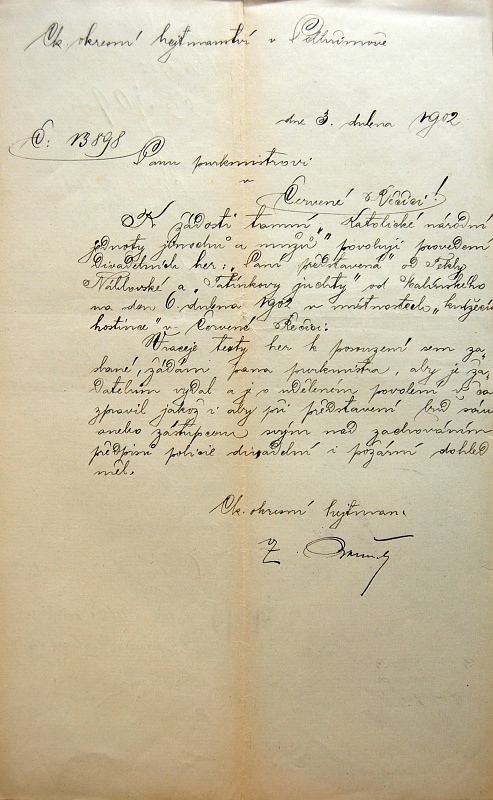 Ck. okresní hejtmanství v Pelhřimově
dne 3. dubna 1902
Č: 13898
Panu purkmistrovi
v
Červené Řečici!
K žádosti tamní „Katolické národní
jednoty jinochů a mužů" povoluji provedení
divadelních her: „Paní představená" od Thekly
a „Tatínkovy juchty" od
na den 6. dubna 1902 v místnostech
hostince" v Červené Řečici.
Vraceje texty her k posouzení sem za-
slané, žádám pana purkmistra, aby je ža-
datelům vydal a je o uděleném povolení
zpravil jakož i aby při představení buď sám
anebo zástupcem svým nad zachováním
předpisů policie divadelní i požární dohled
měl.
Ck. okresní hejtman.